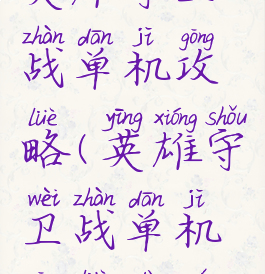 zhàn dān jī gōng
战单机攻
lüè yīng xióng shǒu
略(英雄守
wèi zhàn dān jī
卫战单机